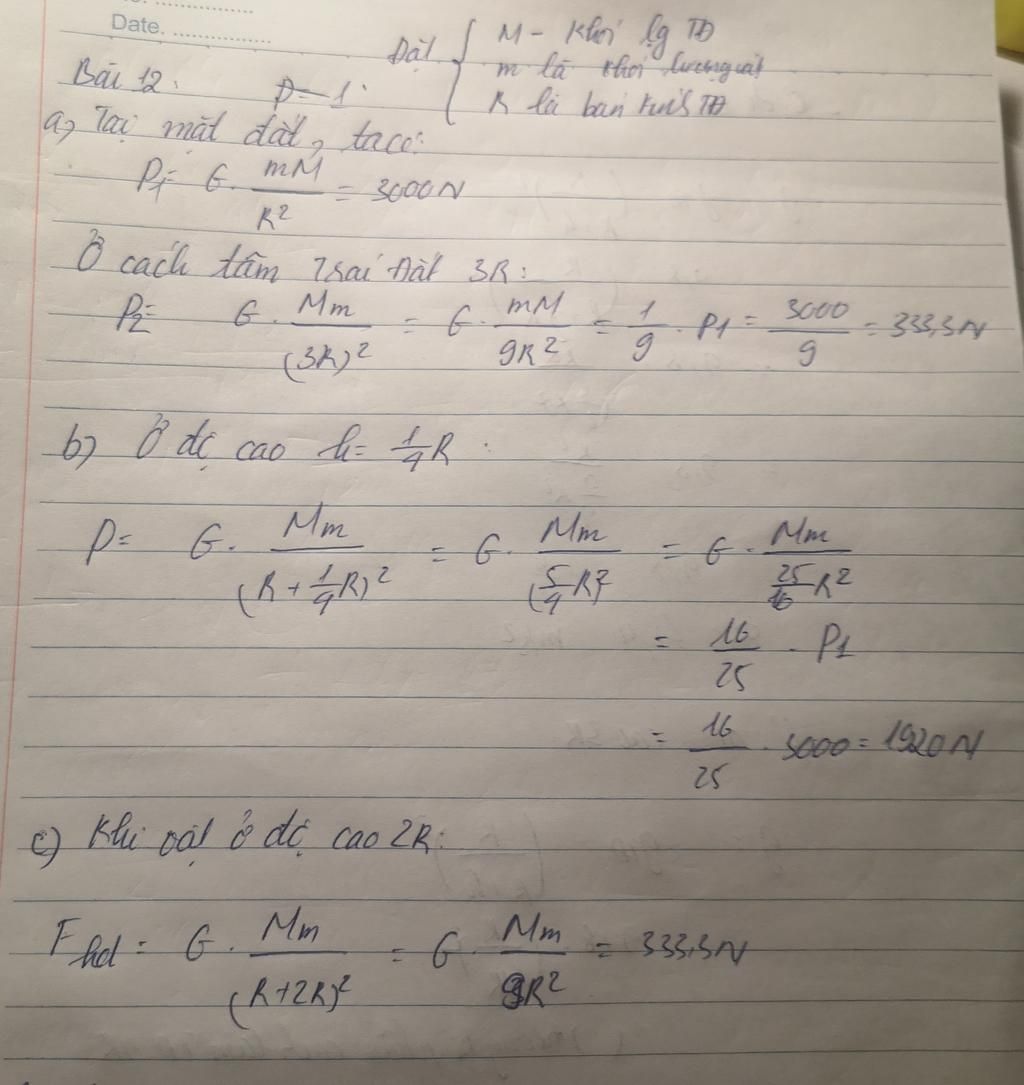 Date. ................
Đặt { M - Khối lg TĐ
m là khối lượng vật
R là bán kính TĐ
Bài 12:
P = 1
a, Tại mặt đất, ta có:
P1 = G . mM / R² = 3000N
Ở cách tâm Trái Đất 3R:
P2 = G . Mm / (3R)² = G . mM / 9R² = 1/9 . P1 = 3000/9 = 333,3N
b) Ở độ cao h = 1/4 R
P = G . Mm / (R + 1/4 R)² = G . Mm / (5/4 R)² = G . Mm / 25/16 R²
= 16/25 . P1
= 16/25 . 3000 = 1920N
c) Khi vật ở độ cao 2R:
Fhd = G . Mm / (R+2R)² = G . Mm / 9R² = 333,3N